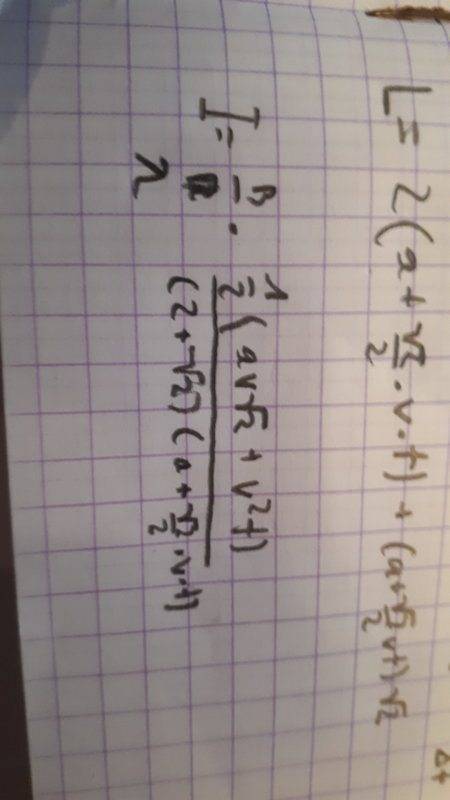 Δt
L = 2(a + √2/2 · v · t) + (a + √2/2 vt)√2
I = B/λ · 1/2(av√2 + v²t) / (2+√2)(a + √2/2 · v · t)